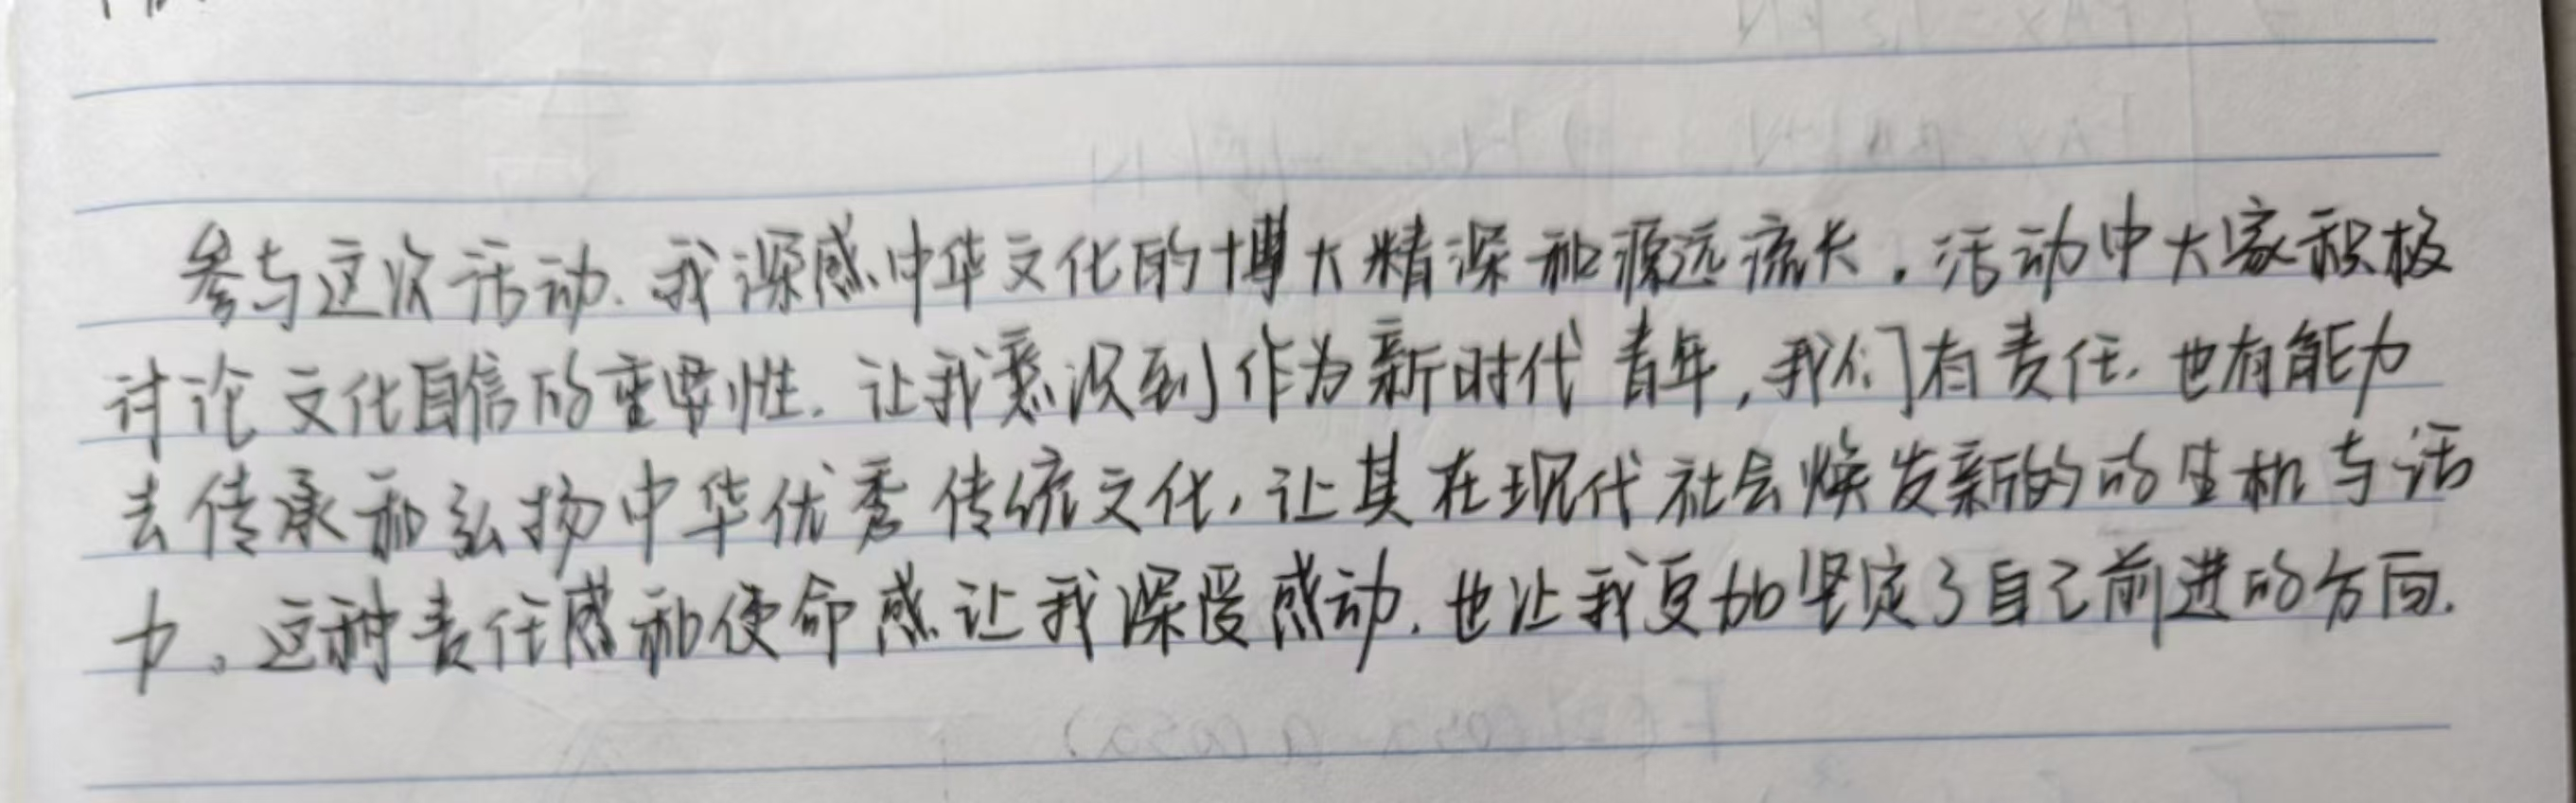 参与这次活动.我深感中华文化的博大精深和源远流长.活动中大家积极
讨论文化自信的重要性.让我意识到作为新时代青年,我们有责任.也有能力
去传承和弘扬中华优秀传统文化,让其在现代社会焕发新的的生机与活
力。这种责任感和使命感让我深受感动.也让我更加坚定了自己前进的方向.